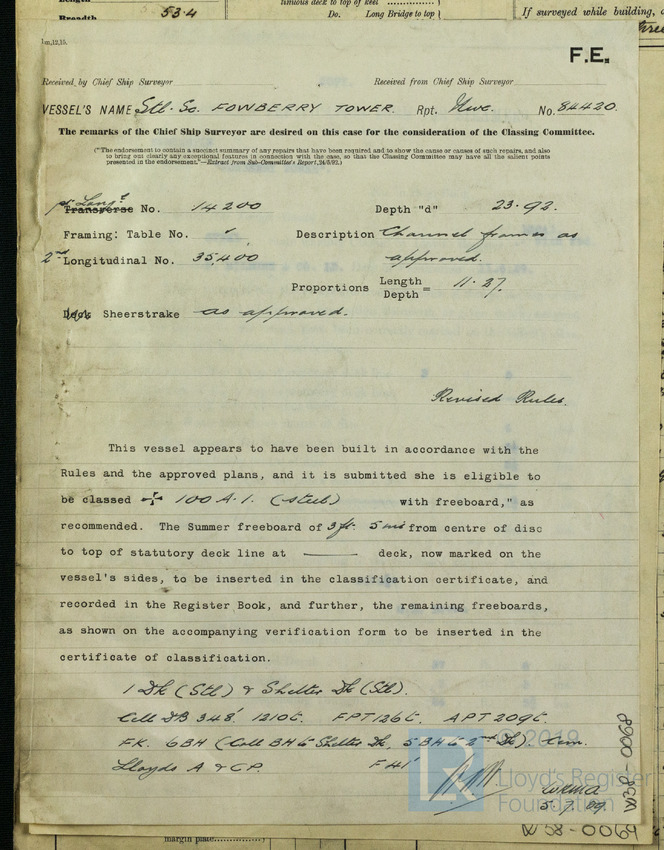 Length
Breadth 53.4
tinuous deck to top of keel
Do. Long Bridge to top
If surveyed while building,
1m,12,15.
F.E.
Received by Chief Ship Surveyor
Received from Chief Ship Surveyor
VESSEL'S NAME Stl. Sc. FOWBERRY TOWER. Rpt. Nwc. No. 84420.
The remarks of the Chief Ship Surveyor are desired on this case for the consideration of the Classing Committee.
("The endorsement to contain a succinct summary of any repairs that have been required and to show the cause or causes of such repairs, and also
to bring out clearly any exceptional features in connection with the case, so that the Classing Committee may have all the salient points
presented in the endorsement."—Extract from Sub-Committee's Report, 24/6/92.)
Transverse No. 14200
Depth "d" 23.92.
Framing: Table No.
Description Channel frames as
2nd Longitudinal No. 35,400
approved.
Proportions Length
Depth = 11.27.
Deck Sheerstrake as approved.
Revised Rules.
This vessel appears to have been built in accordance with the
Rules and the approved plans, and it is submitted she is eligible to
be classed ✠ 100 A.1. (steel) with freeboard," as
recommended. The Summer freeboard of 3 ft. 5 ins from centre of disc
to top of statutory deck line at —— deck, now marked on the
vessel's sides, to be inserted in the classification certificate, and
recorded in the Register Book, and further, the remaining freeboards,
as shown on the accompanying verification form to be inserted in the
certificate of classification.
1 Dk (Stl) & Shelter Dk (Stl).
Cell DB 348' 1210t. FPT 126t. APT 209t.
FK. 6BH (Coll BH to Shelter Dk, 5 BH to 2nd Dk). Cem.
Lloyds A & CP. F 41'
© 2019
LR
Lloyd's Register
Foundation
W58-0069
margin plate